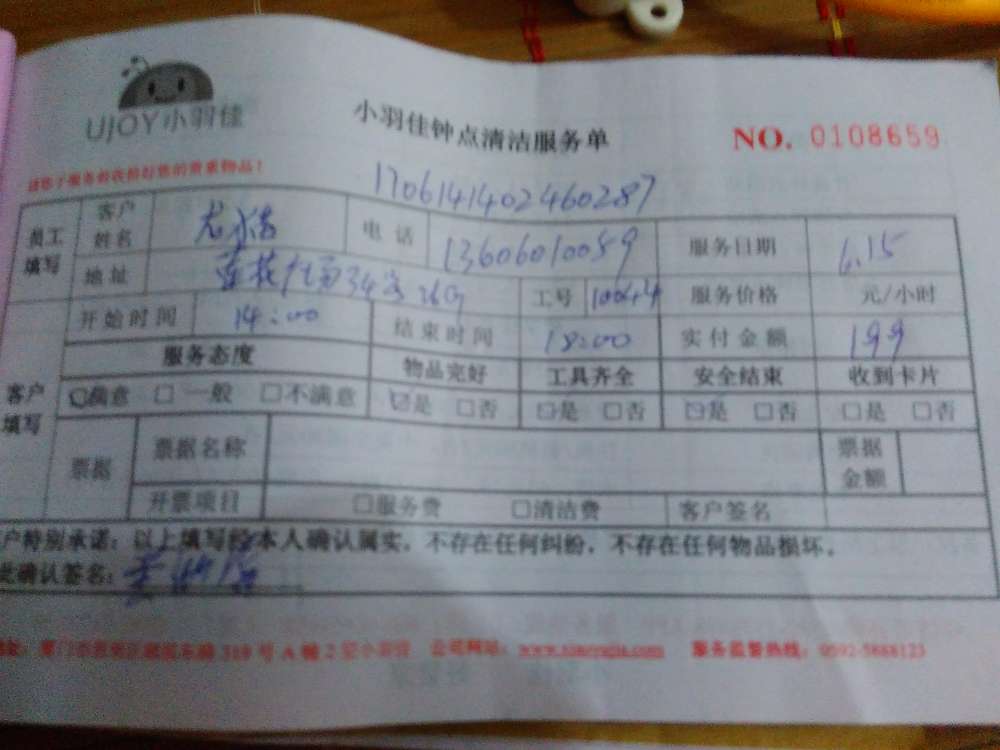 UJOY小羽佳
小羽佳钟点清洁服务单
NO. 0108659
1706141402460287
员工填写 客户姓名 电话 13606010059 服务日期 6.15
地址 莲花 34 26G 工号 服务价格 元/小时
开始时间 14:00 结束时间 18:00 实付金额 199
客户填写 服务态度 物品完好 工具齐全 安全结束 收到卡片
满意 一般 不满意 是 否 是 否 是 否 是 否
票据 票据名称 票据金额
开票项目 服务费 清洁费 客户签名
户特别承诺：以上填写经本人确认属实，不存在任何纠纷，不存在任何物品损坏。
此确认签名：
319号A幢2 小羽佳 公司网站： 服务监督热线：0592-5888123